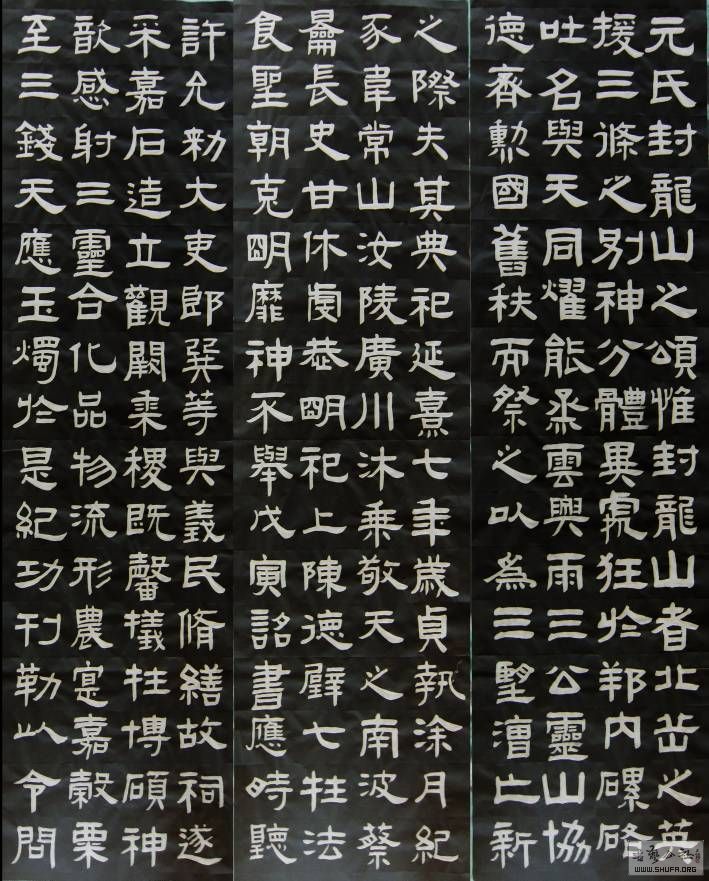 元氏封龍山之頌惟封龍山者北岳之英
援三條之別神分體異處在於邦內磥硌
吐名與天同燿能烝雲興雨三公靈山協
德齊勳國舊秩而祭之以為三望漕亡新
之際失其典祀延熹七年歲貞執涂月紀
豕韋常山汝陵廣川沐乘敬天之南波蔡
長史甘休虔恭明祀上陳德璧七牲法
食聖朝克明靡神不舉戊寅詔書應時聽
許允勑大吏郎巽等與義民脩繕故祠遂
采嘉石造立觀闕黍稷既馨犧牲博碩神
歆感射三靈合化品物流形農寔嘉穀粟
至三錢天應玉燭於是紀功刊勒以令問
WWW.SHUFA.ORG